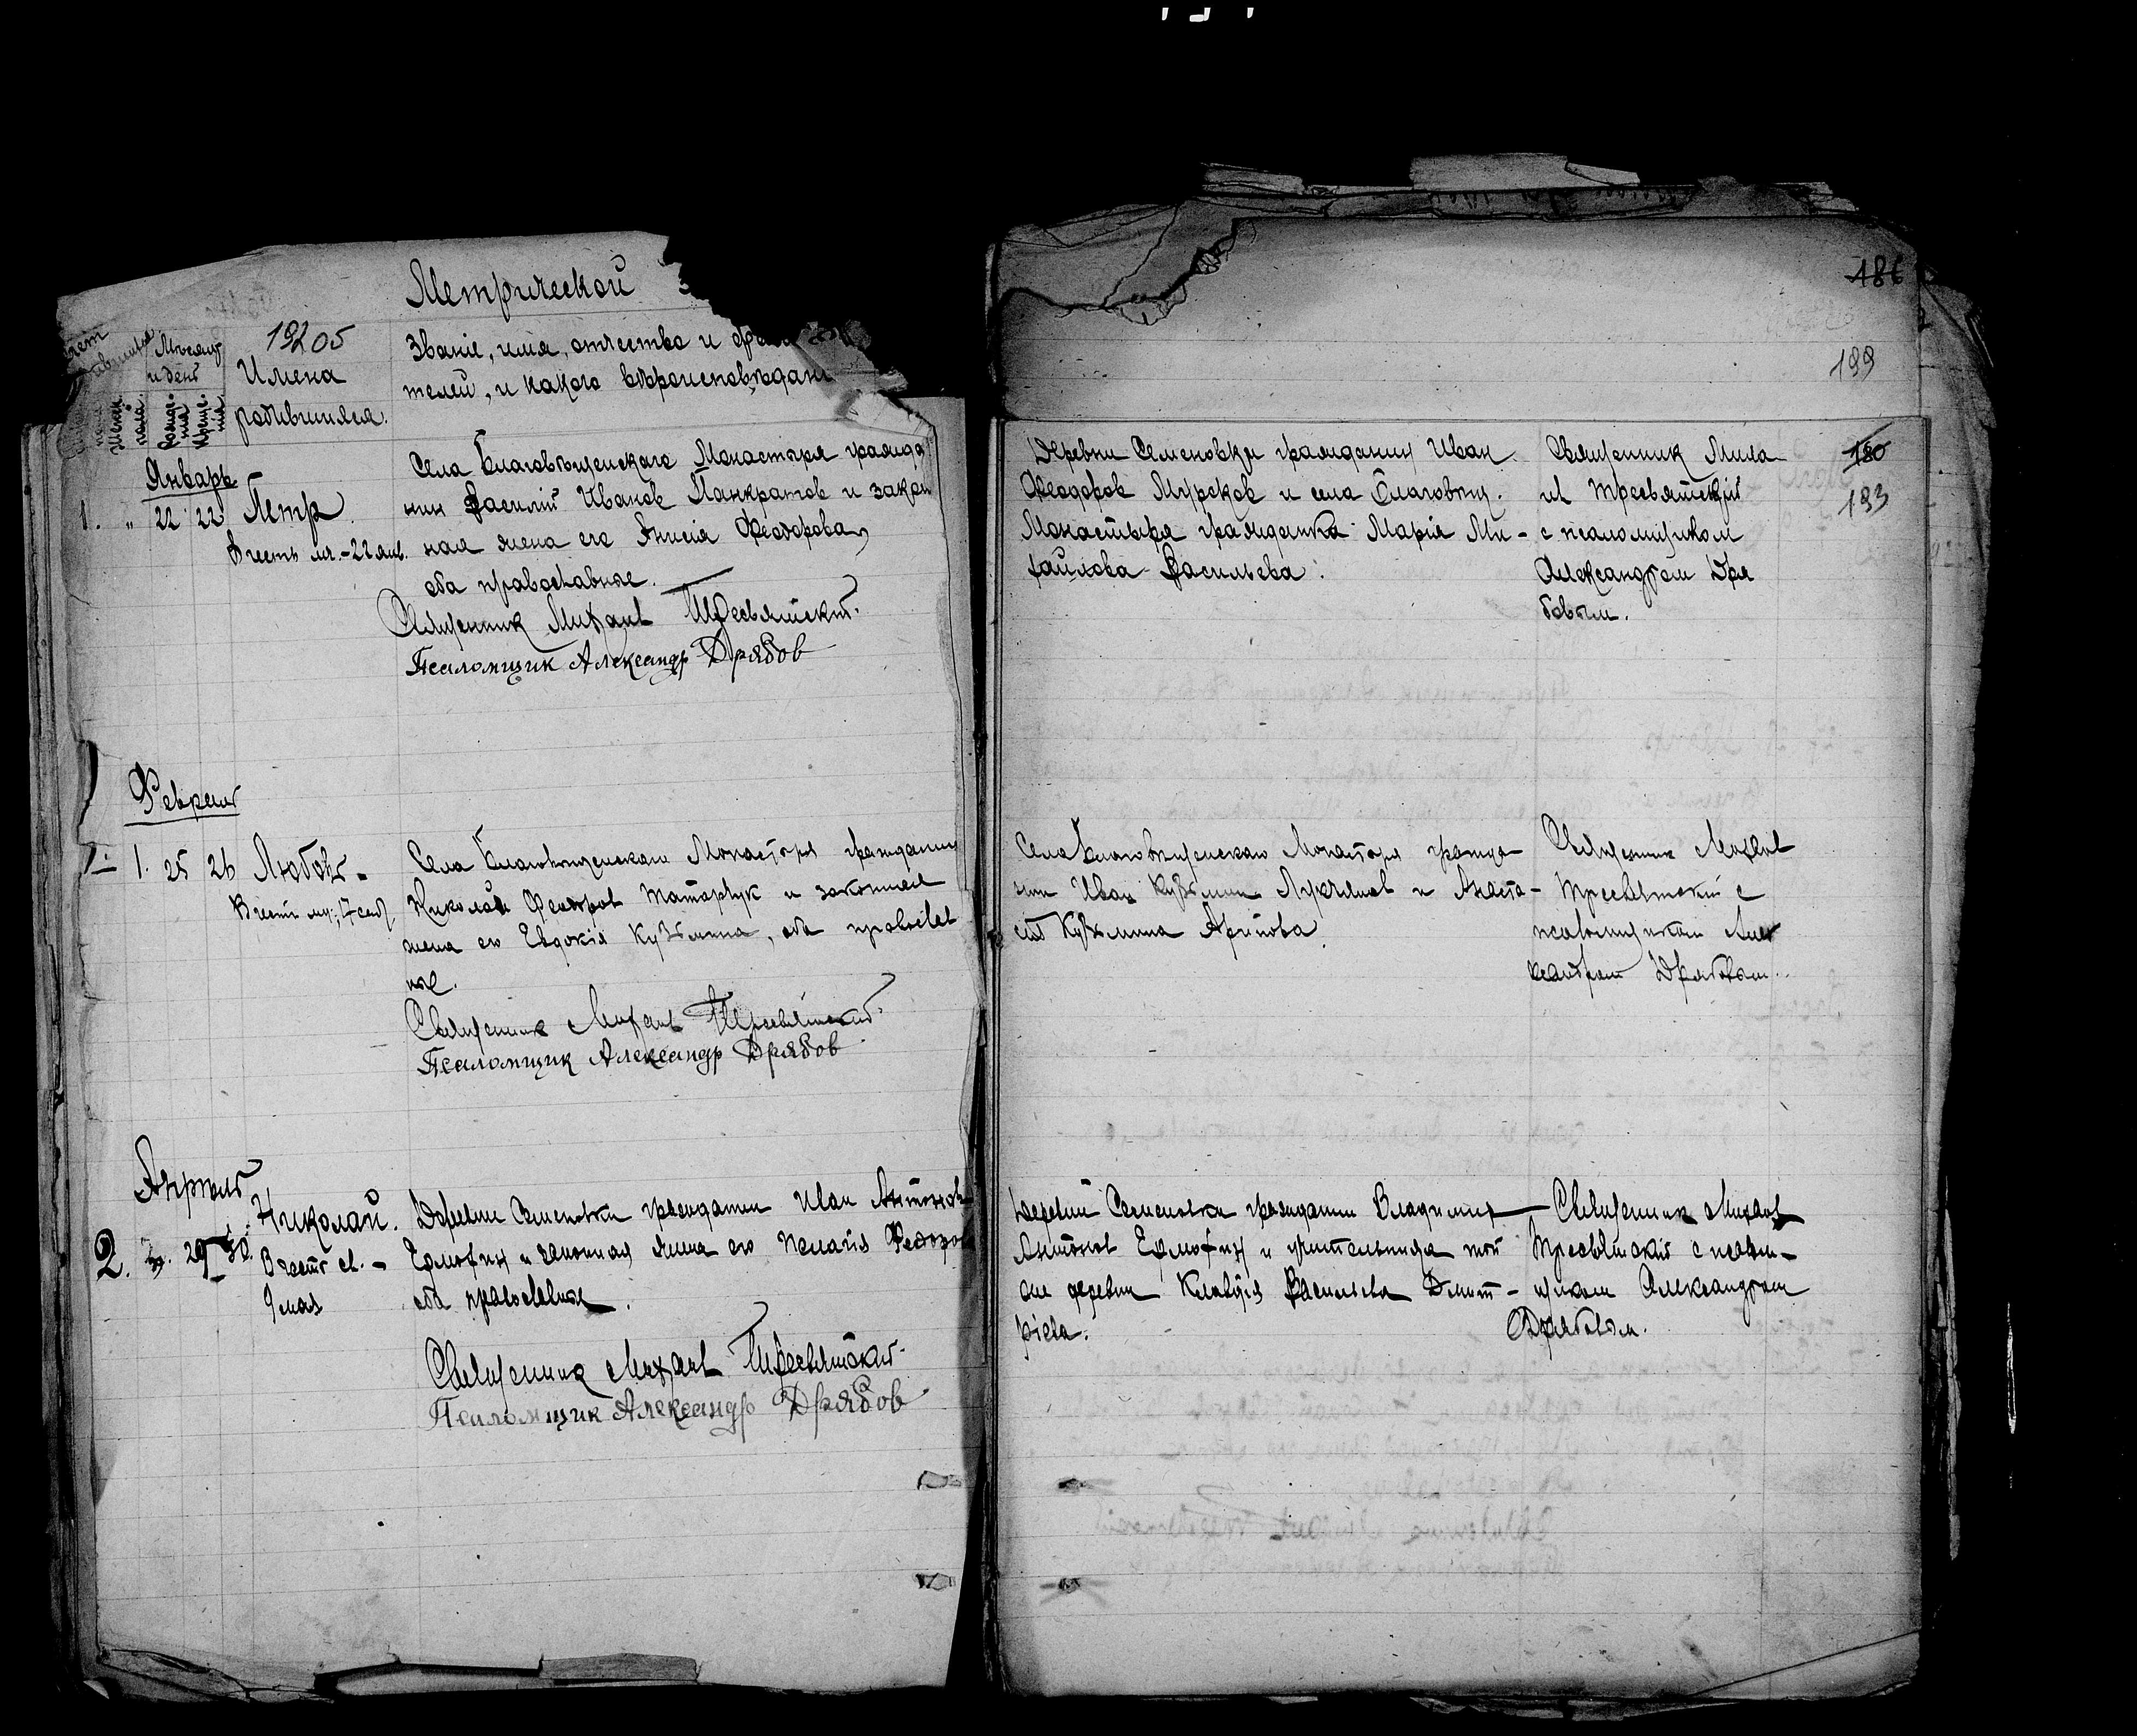 Метрической
186
199
Счет
Месяц
и день
1920 г
Имена
родившихся.
Званіе, имя, отчество и
телей, и какого вѣроисповѣдані
Женск.
пола.
Рожде-
нія
Креще-
нія
Январь
1. " 22 22 Петр.
В честь м.-22 янв.
Села Благовѣщенскаго Монастыря гражда
нин Василій Иванов Панкратов и закон
ная жена его Анисія Феодорова,
оба православные.
Священник Михаил Тресвятскій.
Псаломщик Александр Дрябов
Деревни Семеновки гражданин Иван
Феодоров Мурсков и села Благовѣщ.
Монастыря гражданка Марія Ми-
хайлова Васильева.
Священник Миха
ил Тресвятскій
с псаломщиком
Александром Дря
бовым.
180
193
Февраль
1. 1. 25 26 Любовь.
В честь мц. 17 сент.
Села Благовѣщенскаго Монастыря гражданин
Николай Феодоров Татарчук и законная
жена его Евдокія Кузьмина, оба православ
ные.
Священник Михаил Тресвятскій.
Псаломщик Александр Дрябов
Села Благовѣщенскаго Монастыря гражда
нин Иван Кузьмин Лукьянов и Анаста-
сія Кузьмина
Священник Михаил
Тресвятский с
псаломщиком Алек
сандром Дрябовым.
Апрель
2. 29 30. Николай.
В честь св. -
9 мая
Деревни Семеновки гражданин Иван Антонов
Ермофин и законная жена его Пелагія Федоров
оба православные.
Священник Михаил Тресвятскій.
Псаломщик Александр Дрябов
Деревни Семеновки гражданин Владимир
Антонов Ермофин и учительница той
же деревни Клавдія Васильева Дмит-
ріева.
Священник Михаил
Тресвятскій с псалом-
щиком Александром
Дрябовым.